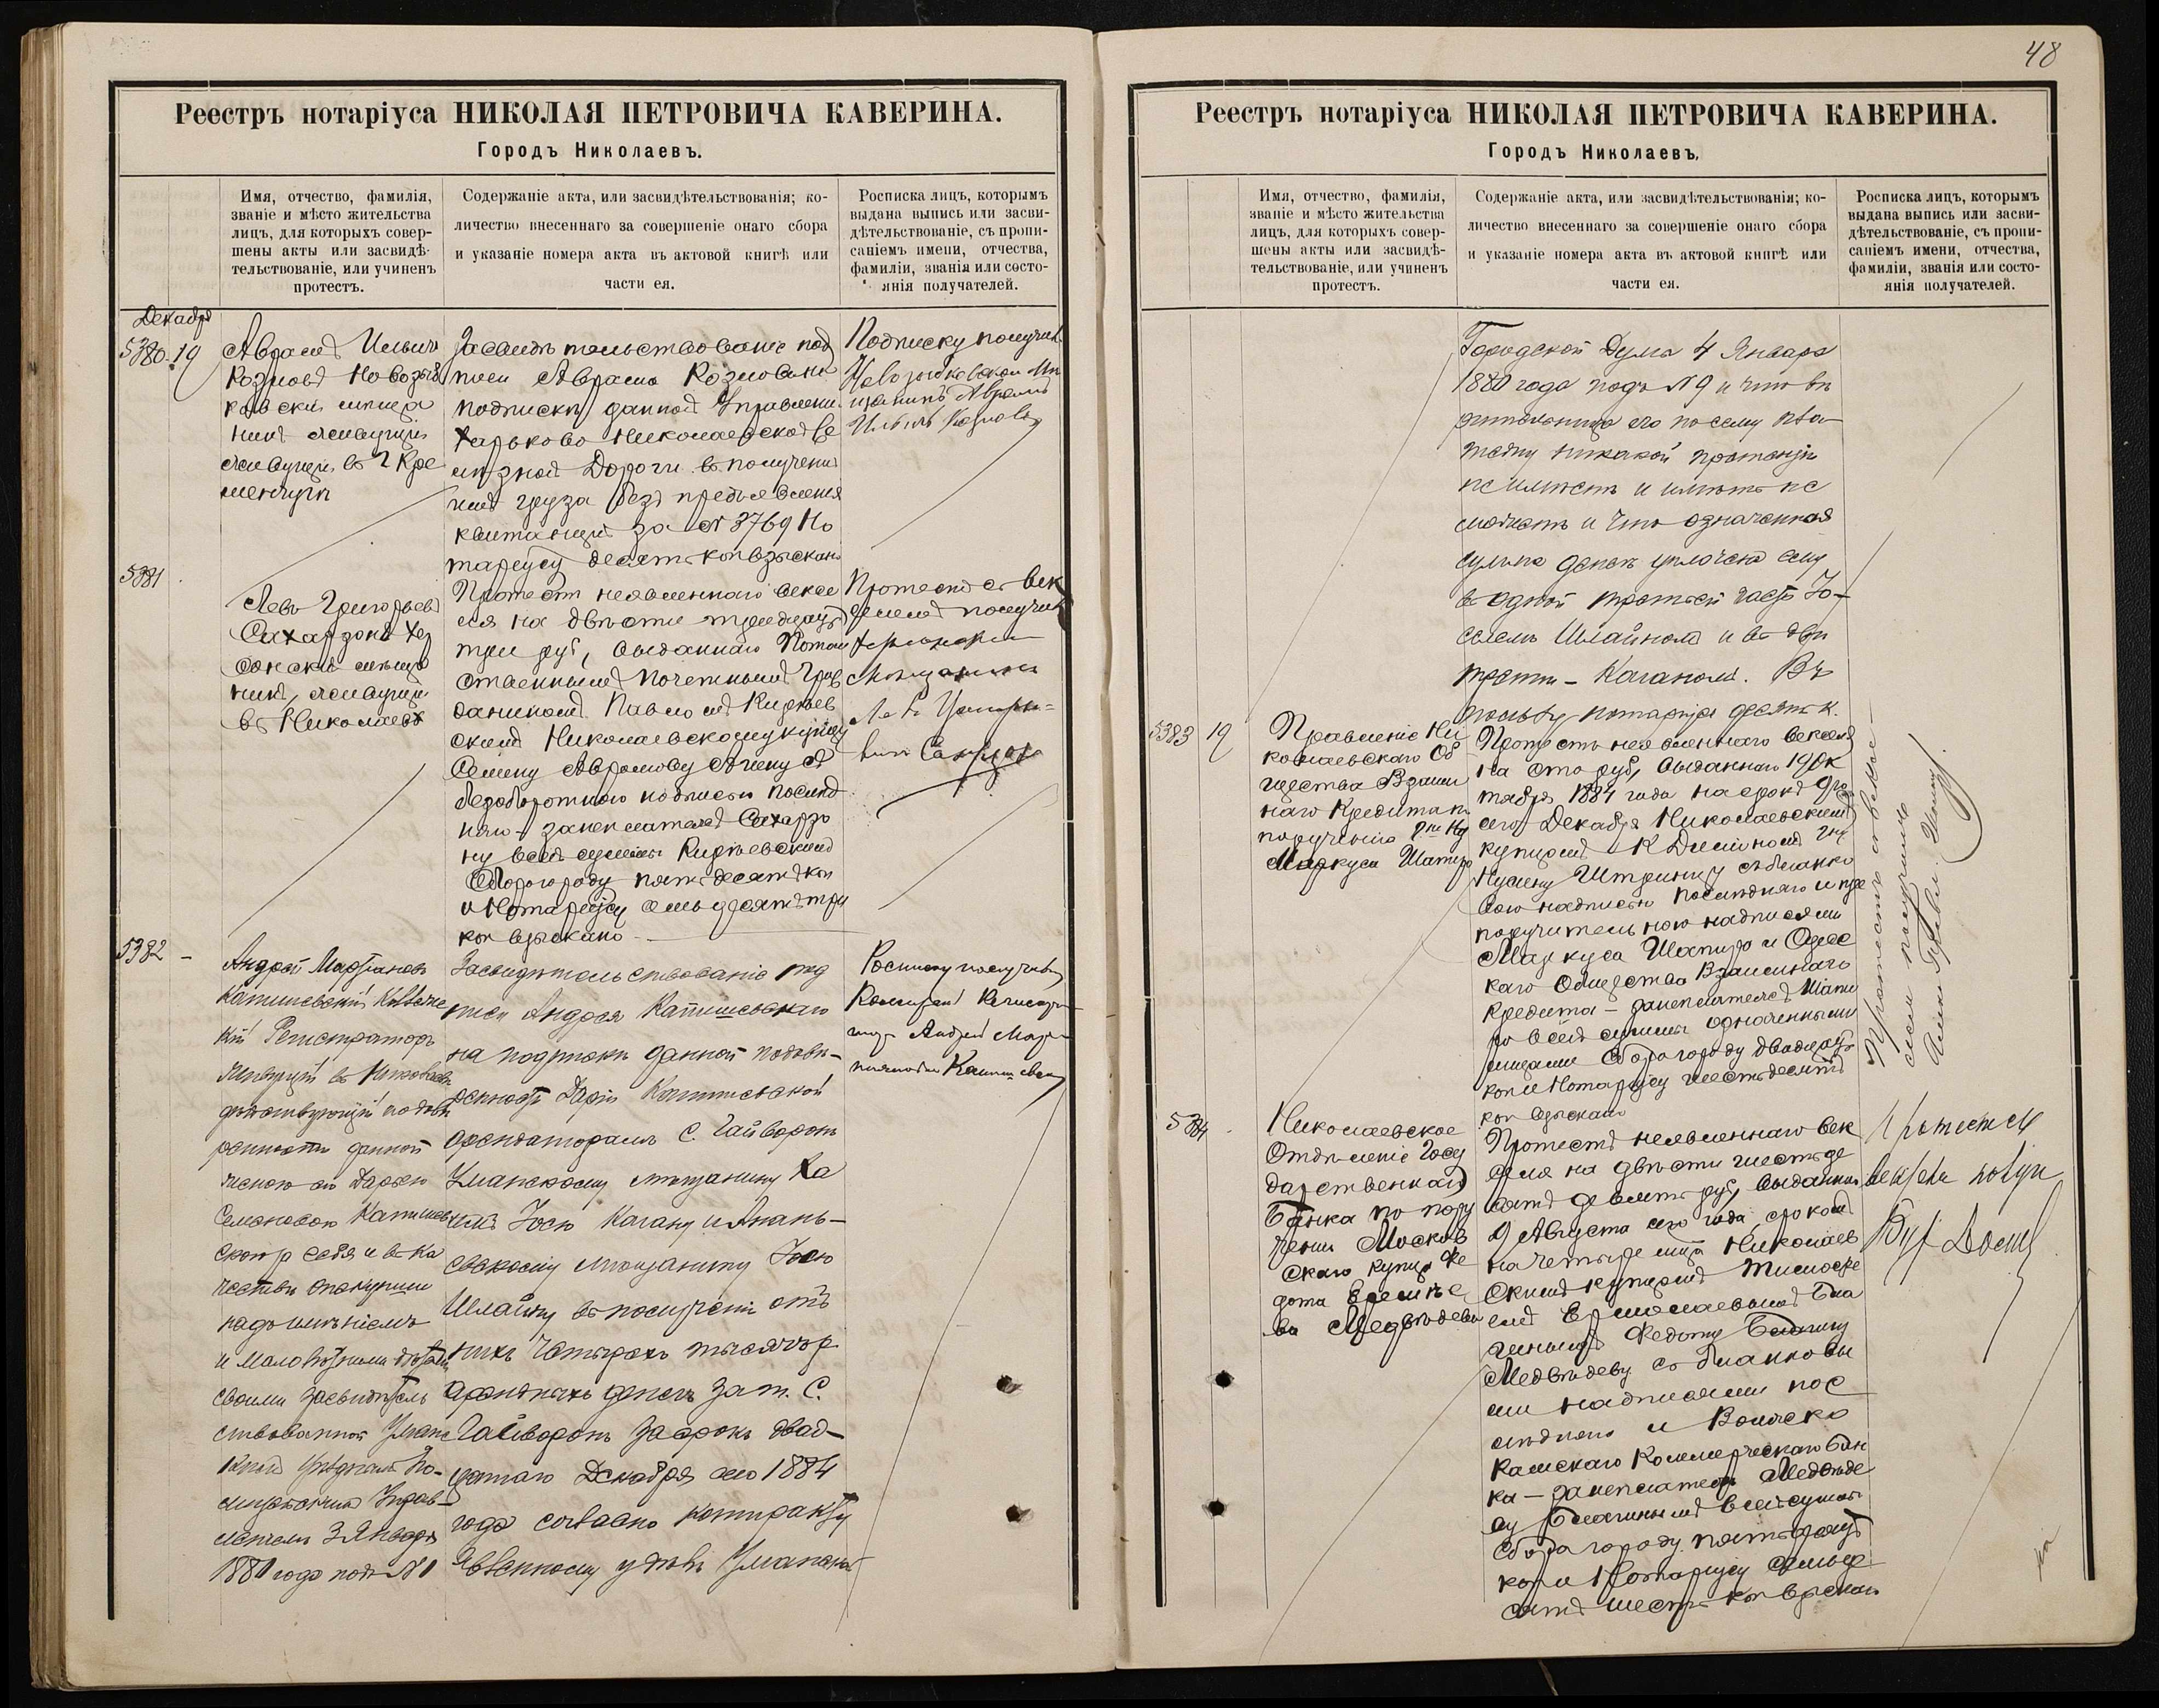 Реестръ нотаріуса НИКОЛАЯ ПЕТРОВИЧА КАВЕРИНА.
Городъ Николаевъ.
Имя, отчество, фамилія,
званіе и мѣсто жительства
лицъ, для которыхъ совер-
шены акты или засвидѣ-
тельствованіе, или учиненъ
протестъ.
Содержаніе акта, или засвидѣтельствованія; ко-
личество внесеннаго за совершеніе онаго сбора
и указаніе номера акта въ актовой книгѣ или
части ея.
Росписка лицъ, которымъ
выдана выпись или засви-
дѣтельствованіе, съ пропи-
саніемъ имени, отчества,
фамиліи, званія или состо-
янія получателей.
Декабря
5380. 19
Авраамъ Ильичъ
Козловъ Новозыб
ковскій мѣща
нинъ живущій
живущій въ г Кре
менчугѣ
Засвидѣтельствованіе под
писи Авраама Козлова на
подпискѣ данной Управлени
Харьково Николаевской Же
лѣзной Дороги въ получені
имъ груза безъ предъявленія
квитанціи за № 3769 Но
таріусу десять коп взыскано
Подписку получилъ
Новозыбковской Мѣ
щанинъ Авраамъ
Ильичъ Козловъ
5381
Левъ Григорьевъ
Сахарзонъ Хер
сонскій мѣща
нинъ, живущій
въ Николаевѣ
Протестъ неявленнаго вексе
ля на двѣсти тридцать
три руб, выданнаго Потом
ственнымъ почетнымъ Граж
даниномъ Павломъ Кирѣев
скимъ Николаевскому купцу
Семену Аврамову Агину съ
безоборотною надписью послѣд
няго – занеплатежъ Сахарзо
ну всей суммы Кирѣевскимъ
Сбора городу пятьдесятъ коп
и Нотаріусу семьдесятъ три
коп взыскано
Протестъ съ век
селемъ получилъ
Херсонскій
Мѣщанинъ
5382 –
Андрей
Капишевскій Коллеж
кій Регистраторъ
живущій въ Николаевѣ
дѣйствующій по довѣ
ренности данной
женою его Дарьею
Семеновою Капишев
скою за себя и въ ка
чествѣ опекунши
надъ имѣніемъ
и малолѣтними дѣтьми
своими засвидѣтель
ствованной Уман
скимъ Уѣзднымъ По-
лицейскимъ Управ-
леніемъ 3 Января
1880 года подъ № 1
Засвидѣтельствованіе под
писи Андрея Капишевскаго
на подпискѣ данной по довѣ-
ренности Дарьи Капишевской
арендаторамъ С. Гайворонъ
Уманскому мѣщанину Ха
иму Іосю Кагану и Анань-
евскому мѣщанину Іосю
Шлайну въ полученіи отъ
нихъ четырехъ тысячъ р
арендныхъ денегъ за т. С.
Гайворонъ за срокъ двад-
цатаго Декабря сего 1884
года согласно контракту
явленному у дѣлъ Уманской
Росписку получилъ
Коллежскій Регистра
торъ Андрей
Капишевскій
48
Реестръ нотаріуса НИКОЛАЯ ПЕТРОВИЧА КАВЕРИНА.
Городъ Николаевъ,
Имя, отчество, фамилія,
званіе и мѣсто жительства
лицъ, для которыхъ совер-
шены акты или засвидѣ-
тельствованіе, или учиненъ
протестъ.
Содержаніе акта, или засвидѣтельствованія; ко-
личество внесеннаго за совершеніе онаго сбора
и указаніе номера акта въ актовой книгѣ или
части ея.
Росписка лицъ, которымъ
выдана выпись или засви-
дѣтельствованіе, съ пропи-
саніемъ имени, отчества,
фамиліи, званія или состо-
янія получателей.
Городской Думы 4 Января
1880 года подъ № 9 и что въ
его по сему пла-
тежу никакой претензіи
не имѣетъ и имѣть не
можетъ и что означенная
сумма денегъ уплочена ему
въ одной третьей части Іо-
селемъ Шлайномъ и въ двѣ
трети – Каганомъ. Въ
пользу нотаріуса десять к.
5383 19
Правленіе Ни
колаевскаго Об
щества Взаим
наго Кредита по
порученію
Маркуса Шапиро
Протестъ неявленнаго векселя
на сто руб, выданнаго 19 Ок
тября 1884 года на срокъ 9го
сего Декабря Николаевскимъ
купцомъ К Дилиномъ
Нусину Штрейну съ бланко
вою надписью послѣдняго и пре
поручительною надписями
Маркуса Шапиро и Одес
каго Общества Взаимнаго
Кредита – занеплатежъ Шапи
ро всей суммы означенными
лицами Сбора городу двадцать
коп и Нотаріусу шестьдесятъ
коп взыскано
Протестъ съ вексе-
лемъ получилъ
5384
Николаевское
Отдѣленіе Госу
дарственнаго
Банка по пору
ченію Москов
скаго купца Фе
дота Еремѣе
ва Медвѣдева
Протестъ неявленнаго век
селя на двѣсти шестьде
сятъ девять руб, выданнаго
9 Августа сего года срокомъ
на четыре м-ца Николаев
скимъ купцомъ Тимофе
емъ Ермолаевымъ Бла
гинымъ Федоту
Медвѣдеву съ бланковы
ми надписями пос
лѣдняго и Волжско
Камскаго Коммерческаго Бан
ка – занеплатежъ Медвѣде
ву Благинымъ всей суммы
Сбора городу пятьдесятъ
коп и Нотаріусу семьде
сятъ шесть коп взыскано
Протестъ съ
векселемъ получ